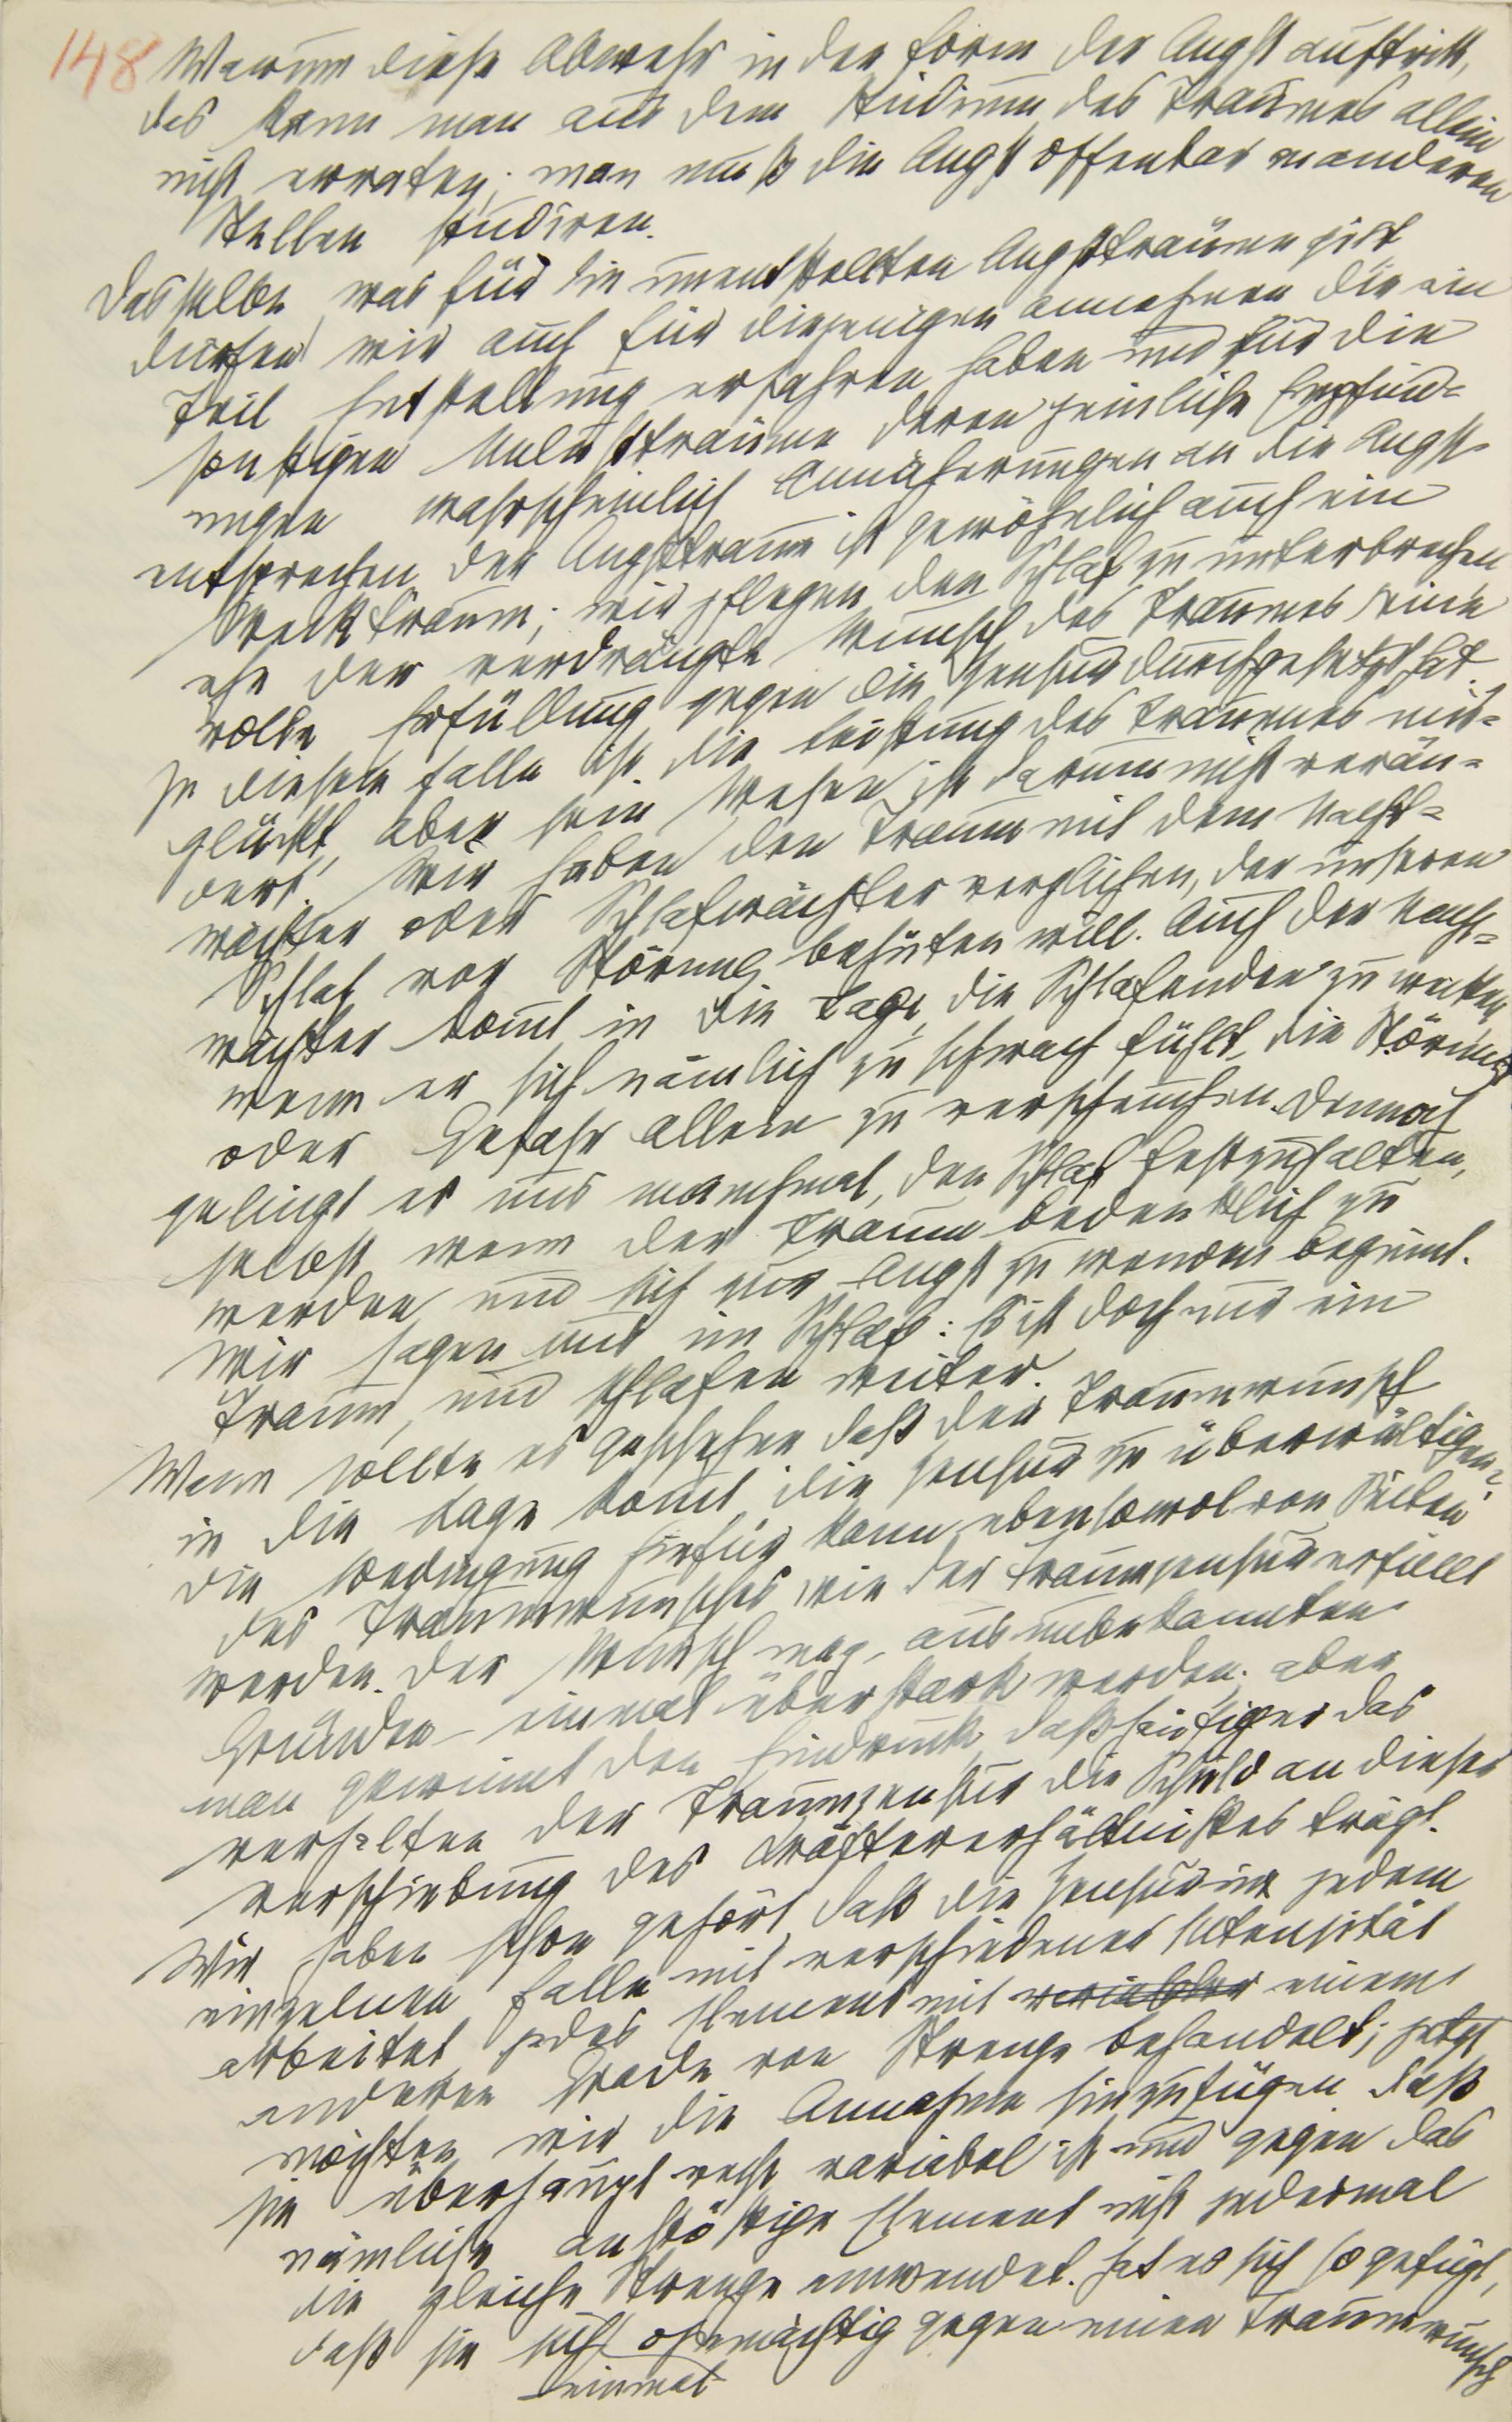 148 Warum diese Abwehr in der Form der Angst auftritt,
das kann man aus dem Studium des Traumes allein
nicht erraten; man muß die Angst offenbar an anderen
Stellen studiren.
Dasselbe, was für die unentstellten Angstträume gilt
dürfen wir auch für diejenigen annehmen die ein
Teil Entstellung erfahren haben und für die
sonstigen Unlustträume deren peinliche Empfind=
ungen wahrscheinlich Annäherungen an die Angst
entsprechen. Der Angsttraum ist gewöhnlich auch ein
Wecktraum; wir pflegen den Schlaf zu unterbrechen
ehe der verdrängte Wunsch des Traumes seine
volle Erfüllung gegen die Zensur durchgesetzt hat.
In diesem Falle ist die Leistung des Traumes mis=
glückt, aber sein Wesen ist darum nicht verän=
dert. Wir haben den Traum mit dem Nacht=
wächter oder Schlafwächter verglichen, der unseren
Schlaf vor Störung behüten will. Auch der Nacht=
wächter kom̅t in die Lage, die Schlafenden zu wecken,
wenn er sich nämlich zu schwach fühlt, die Störung
oder Gefahr allein zu verscheuchen. Dennoch
gelingt es uns manchmal, den Schlaf festzuhalten,
selbst wenn der Traum bedenklich zu
werden und sich zur Angst zu wenden begin̅t.
Wir sagen uns im Schlaf: Es ist doch nur ein
Traum, und schlafen weiter.
Wann sollte es geschehen daß der Traumwunsch
in die Lage kom̅t, die Zensur zu überwältigen?
Die Bedingung hiefür kann ebensowol von Seiten
des Traumwunsches wie der Traumzensur erfüllt
werden. Der Wunsch mag, aus unbekannten
Gründen einmal überstark werden; aber
man gewin̅t den Eindruck, daß häufiger das
Verhalten der Traumzensur die Schuld an dieser
Verschiebung des Kräfteverhältnisses trägt.
Wir haben schon gehört, daß die Zensur in jedem
einzelnen Falle mit verschiedener Intensität
arbeitet, jedes Element mit variabler einem
anderen Grade von Strenge behandelt; jetzt
möchten wir die Annahme hinzufügen daß
sie überhaupt recht variabel ist und gegen das
nämliche anstößige Element nicht jedesmal
die gleiche Strenge anwendet. Hat es sich so gefügt,
daß sie sich ohnmächtig gegen einen Traumwunsch
einmal